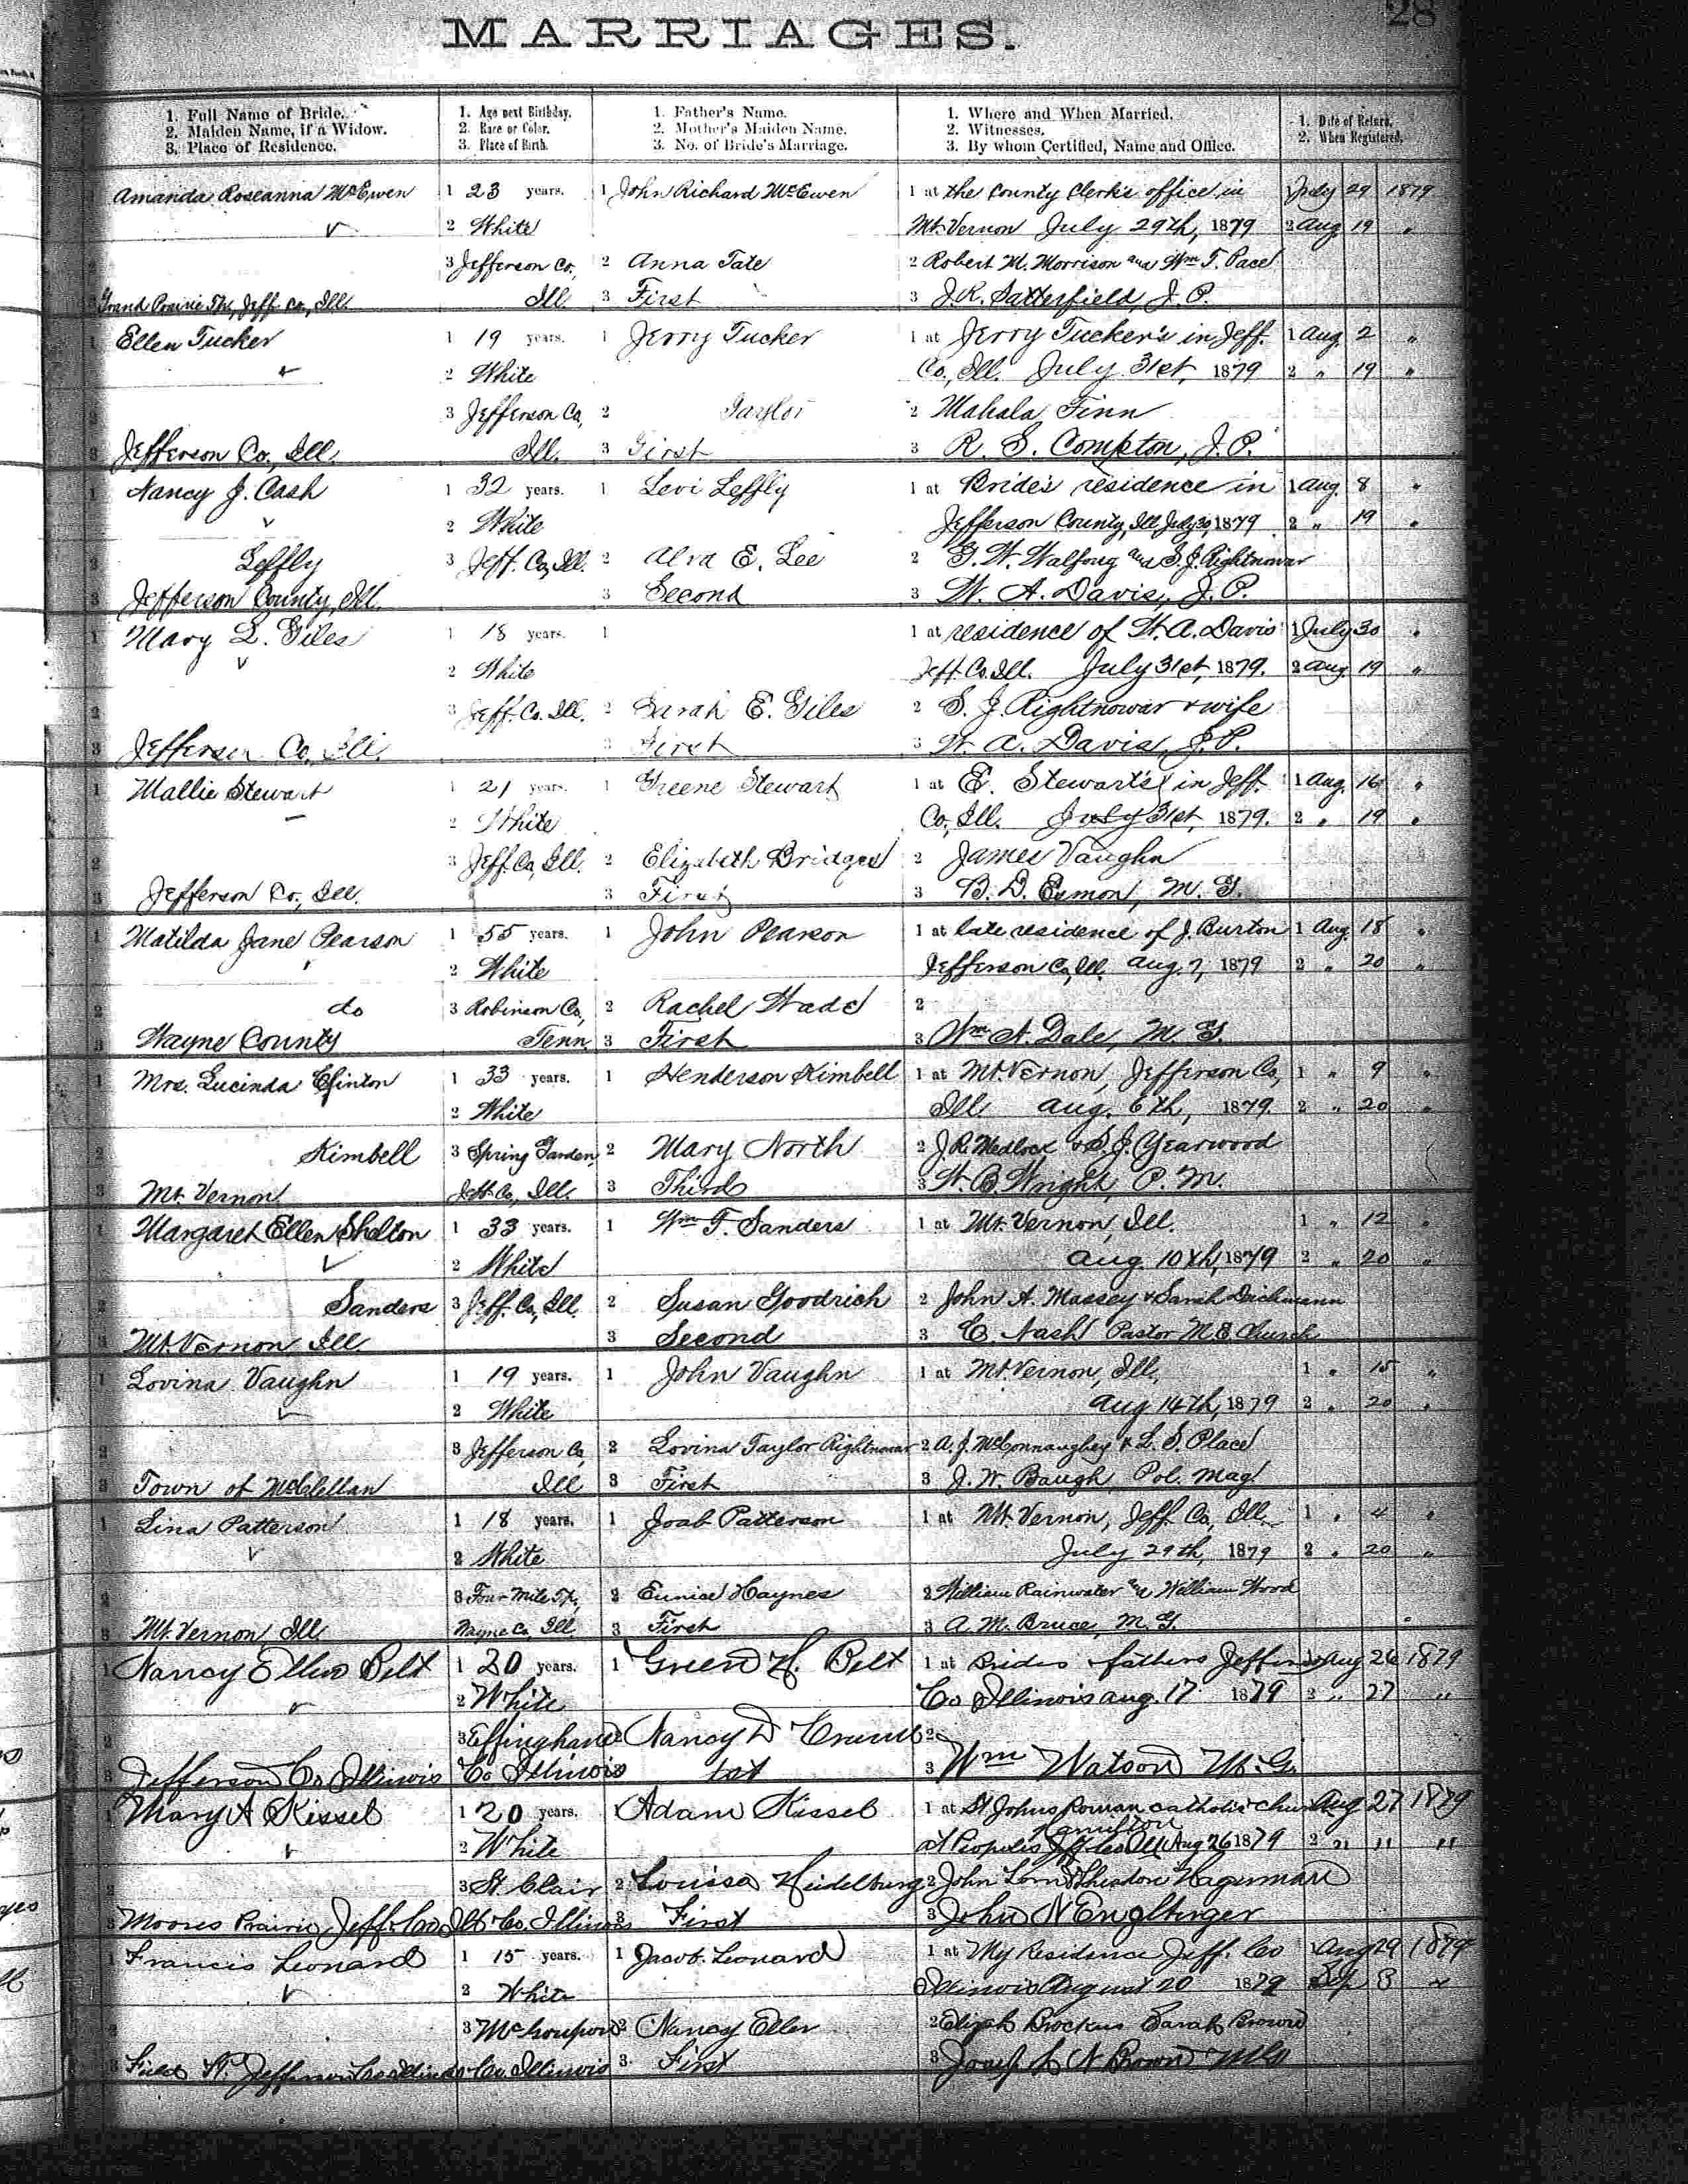 28
MARRIAGES.
1. Full Name of Bride. 1. Age next Birthday. 1. Father's Name. 1. Where and When Married. 1. Date of Return.
2. Maiden Name, if a Widow. 2. Race or Color. 2. Mother's Maiden Name. 2. Witnesses. 2. When Registered.
3. Place of Residence. 3. Place of Birth. 3. No. of Bride's Marriage. 3. By whom Certified, Name and Office.
Amanda Roseanna McEwen 1 23 years. 1 John Richard McEwen 1 at the County Clerk's office in July 29 1879
2 White Mt. Vernon July 29th, 1879 2 Aug. 19 "
2 3 Jefferson Co., 2 Anna Tate 2 Robert M. Morrison and Wm T. Pace
3 Grand Prairie Tp., Jeff. Co., Ill. Ill. 3 First 3 J. R. Satterfield, J. P.
1 Ellen Tucker 1 19 years. 1 Jerry Tucker 1 at Jerry Tucker's in Jeff. 1 Aug. 2 "
2 White Co., Ill. July 31st, 1879 2 " 19 "
2 3 Jefferson Co., 2 Taylor 2 Mahala Finn
3 Jefferson Co., Ill. Ill. 3 First 3 R. S. Compton, J. P.
1 Nancy J. Cash 1 32 years. 1 Levi Leffly 1 at Bride's residence in 1 Aug. 8 "
2 White Jefferson County, Ill. July 30, 1879 2 " 19 "
2 Leffly 3 Jeff. Co., Ill. 2 Alva E. Lee 2 G. W. Walfong and S. J. Rightnowar
3 Jefferson County, Ill. 3 Second 3 W. A. Davis, J. P.
1 Mary L. Giles 1 18 years. 1 1 at residence of W. A. Davis 1 July 30 "
2 White Jeff. Co. Ill. July 31st, 1879. 2 Aug. 19 "
2 3 Jeff. Co. Ill. 2 Sarah E. Giles 2 S. J. Rightnowar & wife
3 Jefferson Co., Ill. 3 First 3 W. A. Davis, J. P.
1 Mallie Stewart 1 21 years. 1 Greene Stewart 1 at E. Stewart's in Jeff. 1 Aug. 16 "
2 White Co., Ill. July 31st, 1879. 2 " 19 "
2 3 Jeff. Co., Ill. 2 Elizabeth Bridges 2 James Vaughn
3 Jefferson Co., Ill. 3 First 3 B. D. Esmon, M. G.
1 Matilda Jane Pearson 1 55 years. 1 John Pearson 1 at late residence of J. Burton 1 Aug. 18 "
2 White Jefferson Co., Ill. Aug. 7, 1879 2 " 20 "
2 do 3 Robinson Co., 2 Rachel Wade 2
3 Wayne County Tenn. 3 First 3 Wm. A. Dale, M. G.
1 Mrs. Lucinda Clinton 1 33 years. 1 Henderson Kimbell 1 at Mt. Vernon, Jefferson Co., 1 " 9 "
2 White Ill. Aug. 6th, 1879. 2 " 20 "
2 Kimbell 3 Spring Garden, 2 Mary North 2 J. R. Medlock & S. J. Yearwood
3 Mt. Vernon Jeff. Co., Ill. 3 Third 3 W. B. Wright, P. M.
1 Margaret Ellen Shelton 1 33 years. 1 Wm. T. Sanders 1 at Mt. Vernon, Ill. 1 " 12 "
2 White Aug. 10th, 1879 2 " 20 "
2 Sanders 3 Jeff. Co., Ill. 2 Susan Goodrich 2 John A. Massey & Sarah Dickmann
3 Mt. Vernon Ill 3 Second 3 C. Nash Pastor M E Church
1 Lovina Vaughn 1 19 years. 1 John Vaughn 1 at Mt. Vernon, Ill., 1 " 15 "
2 White Aug 14th, 1879 2 " 20 "
2 3 Jefferson Co., 2 Lovina Taylor Rightnowar 2 A. J. McConnaughey & L. S. Place
3 Town of McClellan Ill 3 First 3 J. W. Baugh, Pol. Mag.
1 Lina Patterson 1 18 years. 1 Joab Patterson 1 at Mt. Vernon, Jeff. Co., Ill. 1 " 4 "
2 White July 29th, 1879 2 " 20 "
2 3 Four Mile Tp., 2 Eunice Haynes 2 William Rainwater and William Wood
3 Mt. Vernon, Ill Wayne Co., Ill. 3 First 3 A. M. Bruce, M. G.
1 Nancy Ellen Belt 1 20 years. 1 Green H. Belt 1 at Brides fathers Jefferson Aug 26 1879
2 White Co Illinois Aug. 17 1879 2 " 27 "
2 3 Effingham 2 Nancy D 2
3 Jefferson Co Illinois Co Illinois 1st 3 Wm Watson M. G.
1 Mary A Kissel 1 20 years. 1 Adam Kissel 1 at St Johns Roman Catholic Church Aug 27 1879
Hamilton
2 White at Piopolis Jeff Co Ill Aug 26 1879 2 " " "
2 3 St Clair 2 Louisa Heidelburg 2 John Hagerman
3 Moores Prairie Jeff Co Ill Co Illinois 3 First 3 John N
1 Francis Leonard 1 15 years. 1 Jacob Leonard 1 at My Residence Jeff. Co Aug 29 1879
2 White Illinois August 20 1879 Sep 3 "
2 3 2 Nancy Eller 2 Elijah Brockus Sarah Brown
3 Field Tp. Jefferson Co Illinois Co. Illinois 3. First 3 Brown